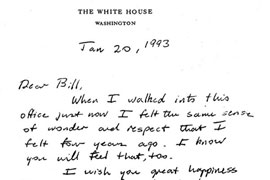 THE WHITE HOUSE
WASHINGTON
Jan 20, 1993
Dear Bill,
When I walked into this
office just now I felt the same sense
of wonder and respect that I
felt four years ago. I know
you will feel that, too.
I wish you great happiness